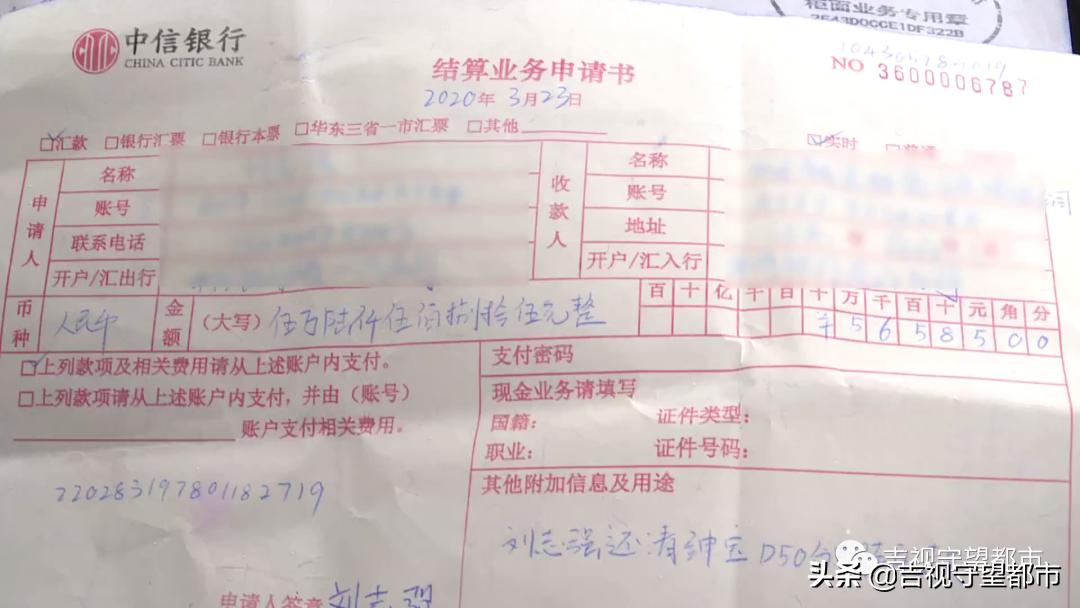 柜面业务专用章
2E43D0CCE1DF322B
中信银行
CHINA CITIC BANK
结算业务申请书
NO 3600006787
2020年3月23日
汇款 银行汇票 银行本票 华东三省一市汇票 其他
实时 普通
申请人
名称
账号
联系电话
开户/汇出行
收款人
名称
账号
地址
开户/汇入行
币种 人民币
金额 (大写) 伍万陆仟伍佰捌拾伍元整
百十亿千百十万千百十元角分
¥5658500
上列款项及相关费用请从上述账户内支付。
上列款项请从上述账户内支付，并由（账号）
账户支付相关费用。
支付密码
现金业务请填写
国籍： 证件类型：
职业： 证件号码：
其他附加信息及用途
220283197801182719
刘志强还清绅宝D50
申请人签章 刘志强
吉视守望都市
头条 @吉视守望都市